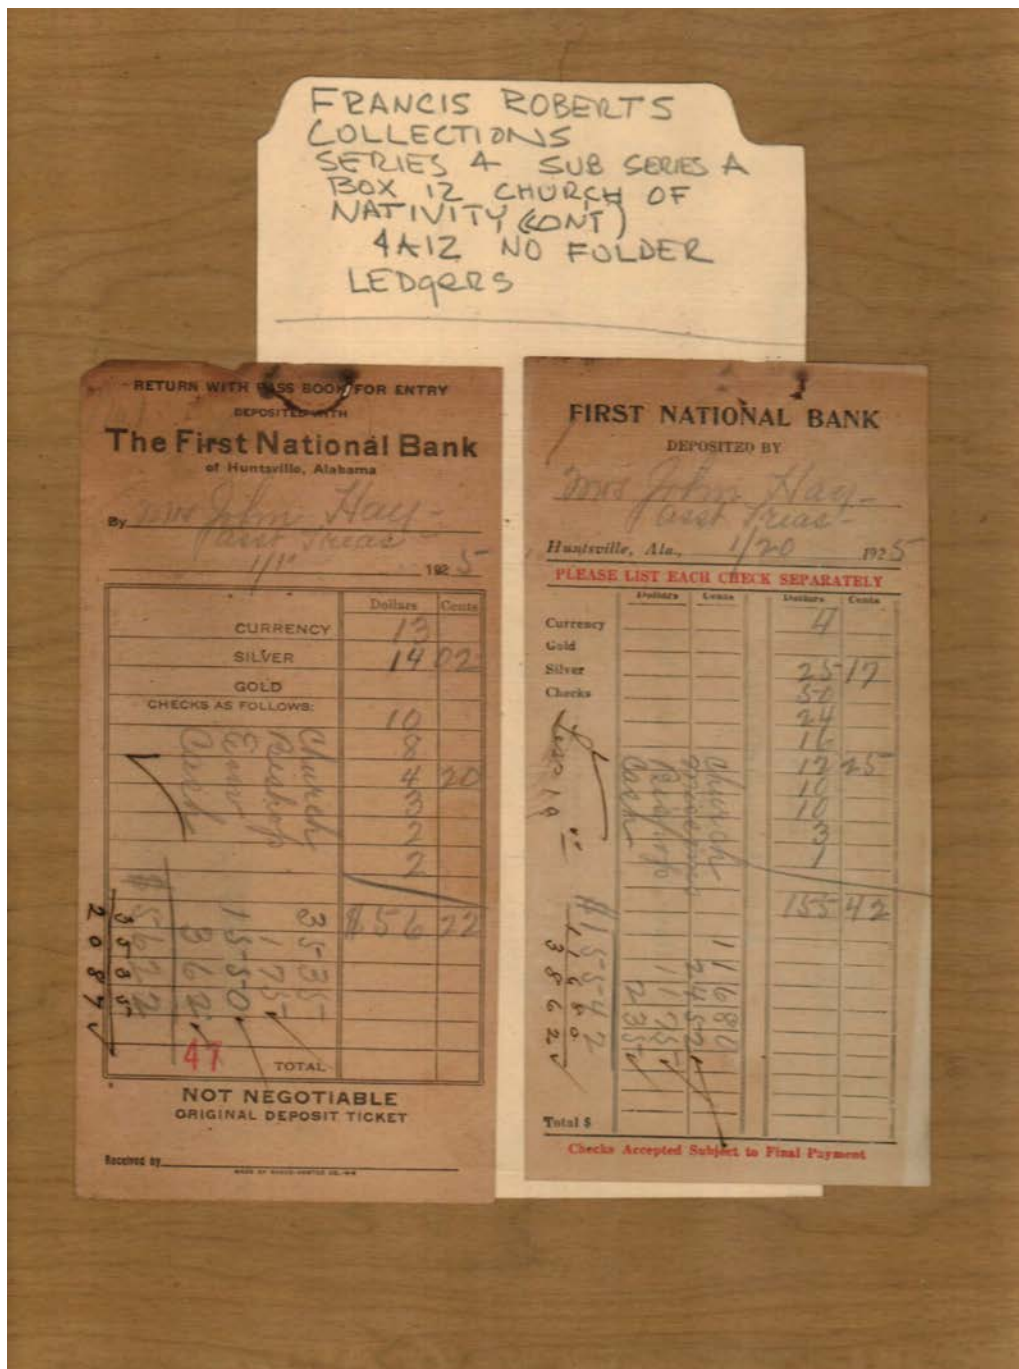 FRANCIS ROBERTS
COLLECTIONS
SERIES 4 SUB SERIES A
BOX 12 CHURCH OF
NATIVITY (CONT)
4A12 NO FOLDER
LEDgERS
RETURN WITH PASS BOOK FOR ENTRY
DEPOSITED WITH
The First National Bank
of Huntsville, Alabama
By Mrs John Hay-
Asst Treas
1925
Dollars Cents
CURRENCY 13
SILVER 14 02
GOLD
CHECKS AS FOLLOWS:
10
8
4 20
3
2
2
$56 22
Church 35 35
Bishop 1 75
15 50
Cash 3 62
$56 22
35 35
20 87
47
TOTAL
NOT NEGOTIABLE
ORIGINAL DEPOSIT TICKET
Received by
FIRST NATIONAL BANK
DEPOSITED BY
Mrs John Hay-
Asst Treas-
Huntsville, Ala., 1/20 1925
PLEASE LIST EACH CHECK SEPARATELY
Dollars Cents Dollars Cents
Currency 4
Gold
Silver 25 17
Checks 50
24
16
12 25
10
10
3
1
155 42
Church 116 80
24 52
Bishop 11 75
Cash 2 35
$155 42
116 80
38 62
Total $
Checks Accepted Subject to Final Payment